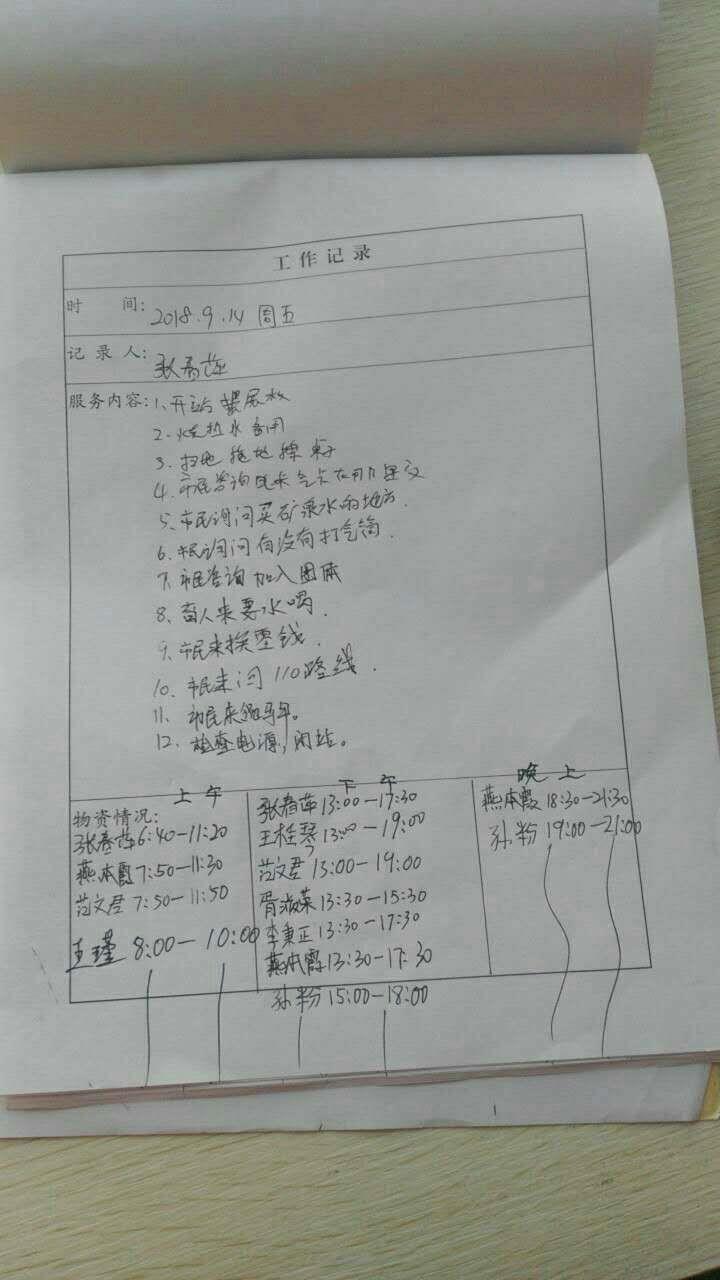 工作记录
时 间: 2018.9.14 周五
记录人: 张春萍
服务内容: 1、开站 摆展板
2、烧热水备用
3、扫地 拖地 擦桌子
4、市民咨询
5、市民询问买矿泉水的地方.
6、市民询问有没有打气筒.
7、市民咨询加入团体
8、有人来要水喝.
9、市民来换零钱.
10、市民来问110路线.
11、市民来领
12、检查电源,闭站。
上午 下午 晚上
物资情况:
张春萍 6:40—11:20
燕本霞 7:50—11:30
范文君 7:50—11:50
王瑾 8:00—10:00
张春萍 13:00—17:30
王桂琴 13:00—19:00
范文君 13:00—19:00
胥淑荣 13:30—15:30
李秉正 13:30—17:30
燕本霞 13:30—17:30
孙粉 15:00—18:00
燕本霞 18:30—21:30
孙粉 19:00—21:00